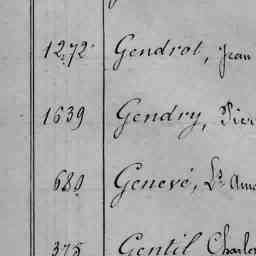 1272 Gendrot, Jean
1639 Gendry, Pier
680 Genevé, Ls
375 Gentil Charle